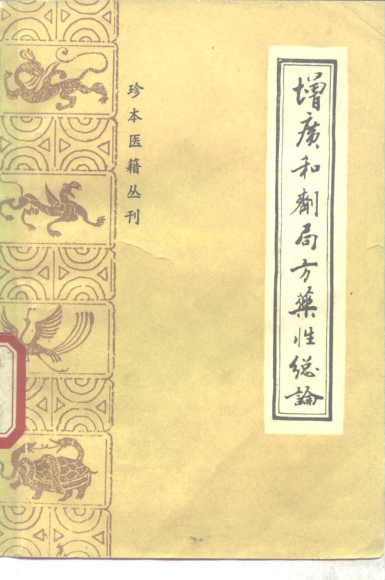 增廣和劑局方藥性總論
珍本医籍丛刊